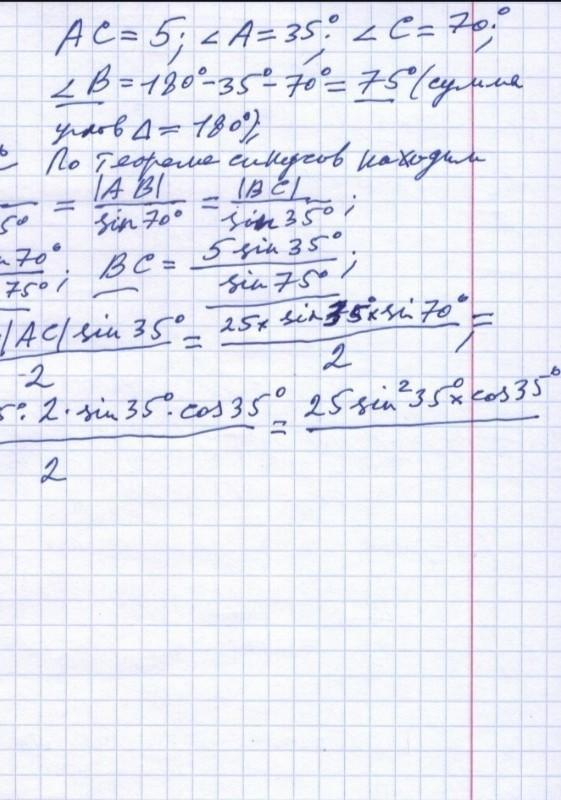 AC = 5; ∠A = 35°; ∠C = 70°;
∠B = 180° - 35° - 70° = 75° (сумма
углов Δ = 180°);
По теореме синусов находим
5° = |AB| / sin 70° = |BC| / sin 35°;
70° / 75°; BC = 5 sin 35° / sin 75°;
|AC| sin 35° / 2 = 25 × sin 35° × sin 70° / 2 ;=
5° · 2 · sin 35° · cos 35° / 2 = 25 sin² 35° × cos 35°